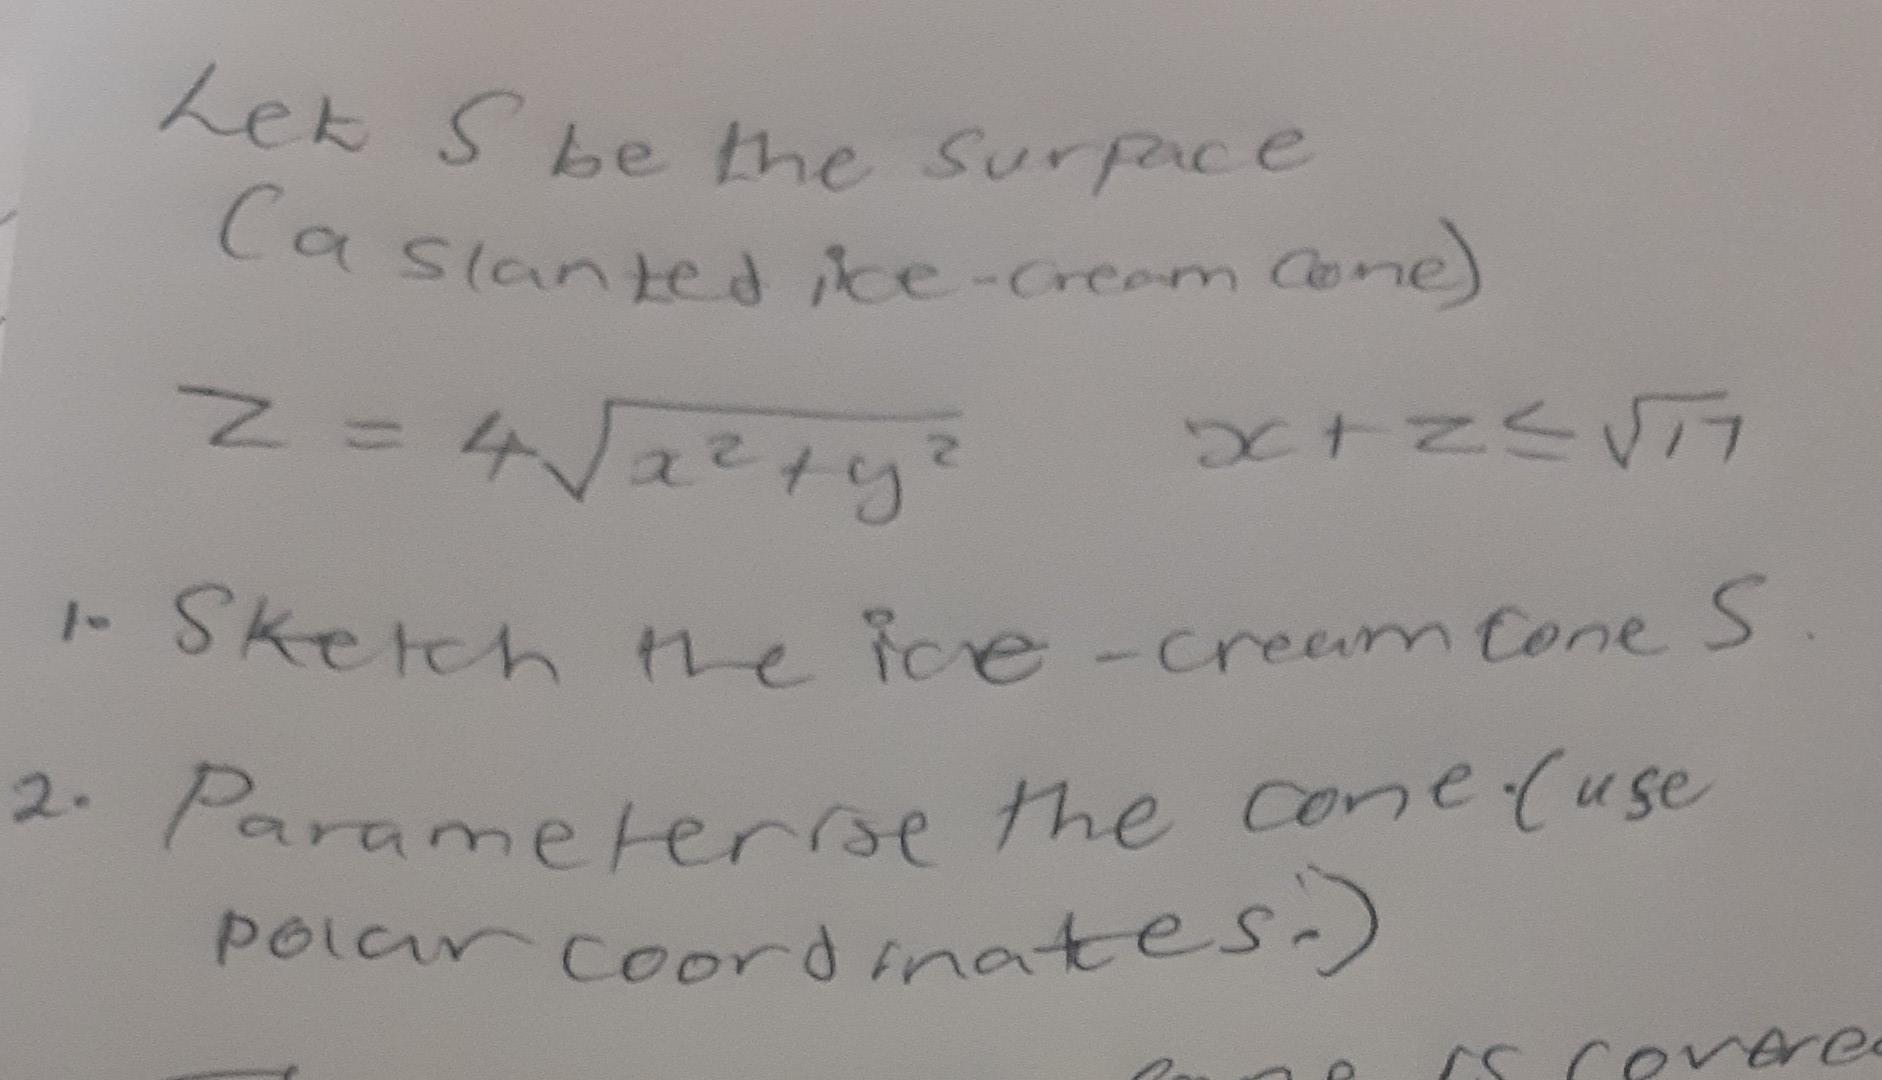 Let S be the surface
(a slanted ice-cream cone)
z = 4√(x²+y²) x+z≤√17
1. Sketch the ice-cream cone S.
2. Parameterise the cone. (use
polar coordinates.)
is covered